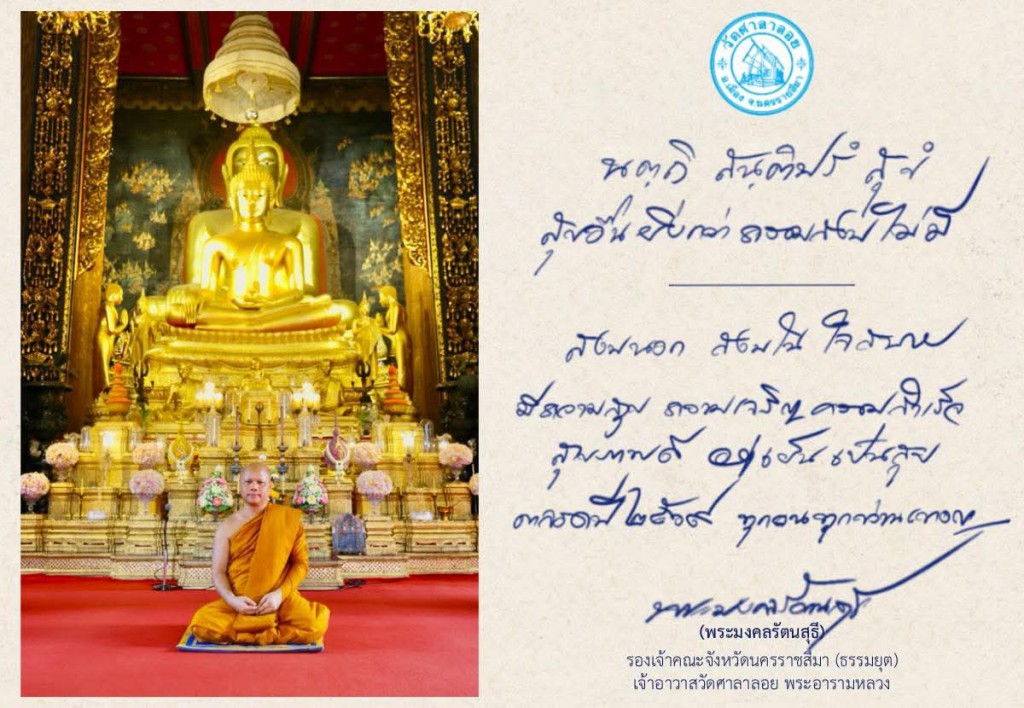 วัดศาลาลอย
อ.เมือง จ.นครราชสีมา
นตฺถิ สนฺติปรํ สุขํ
สุขอื่นยิ่งกว่าความสงบไม่มี
สงบนอก สงบใน ใจสบาย
มีความสุข ความเจริญ ความสำเร็จ
สุขภาพดี อยู่เย็นเป็นสุข
ตลอดปี ๒๕๖๙ ทุกคนทุกท่านเทอญ
(พระมงคลรัตนสุธี)
รองเจ้าคณะจังหวัดนครราชสีมา (ธรรมยุต)
เจ้าอาวาสวัดศาลาลอย พระอารามหลวง